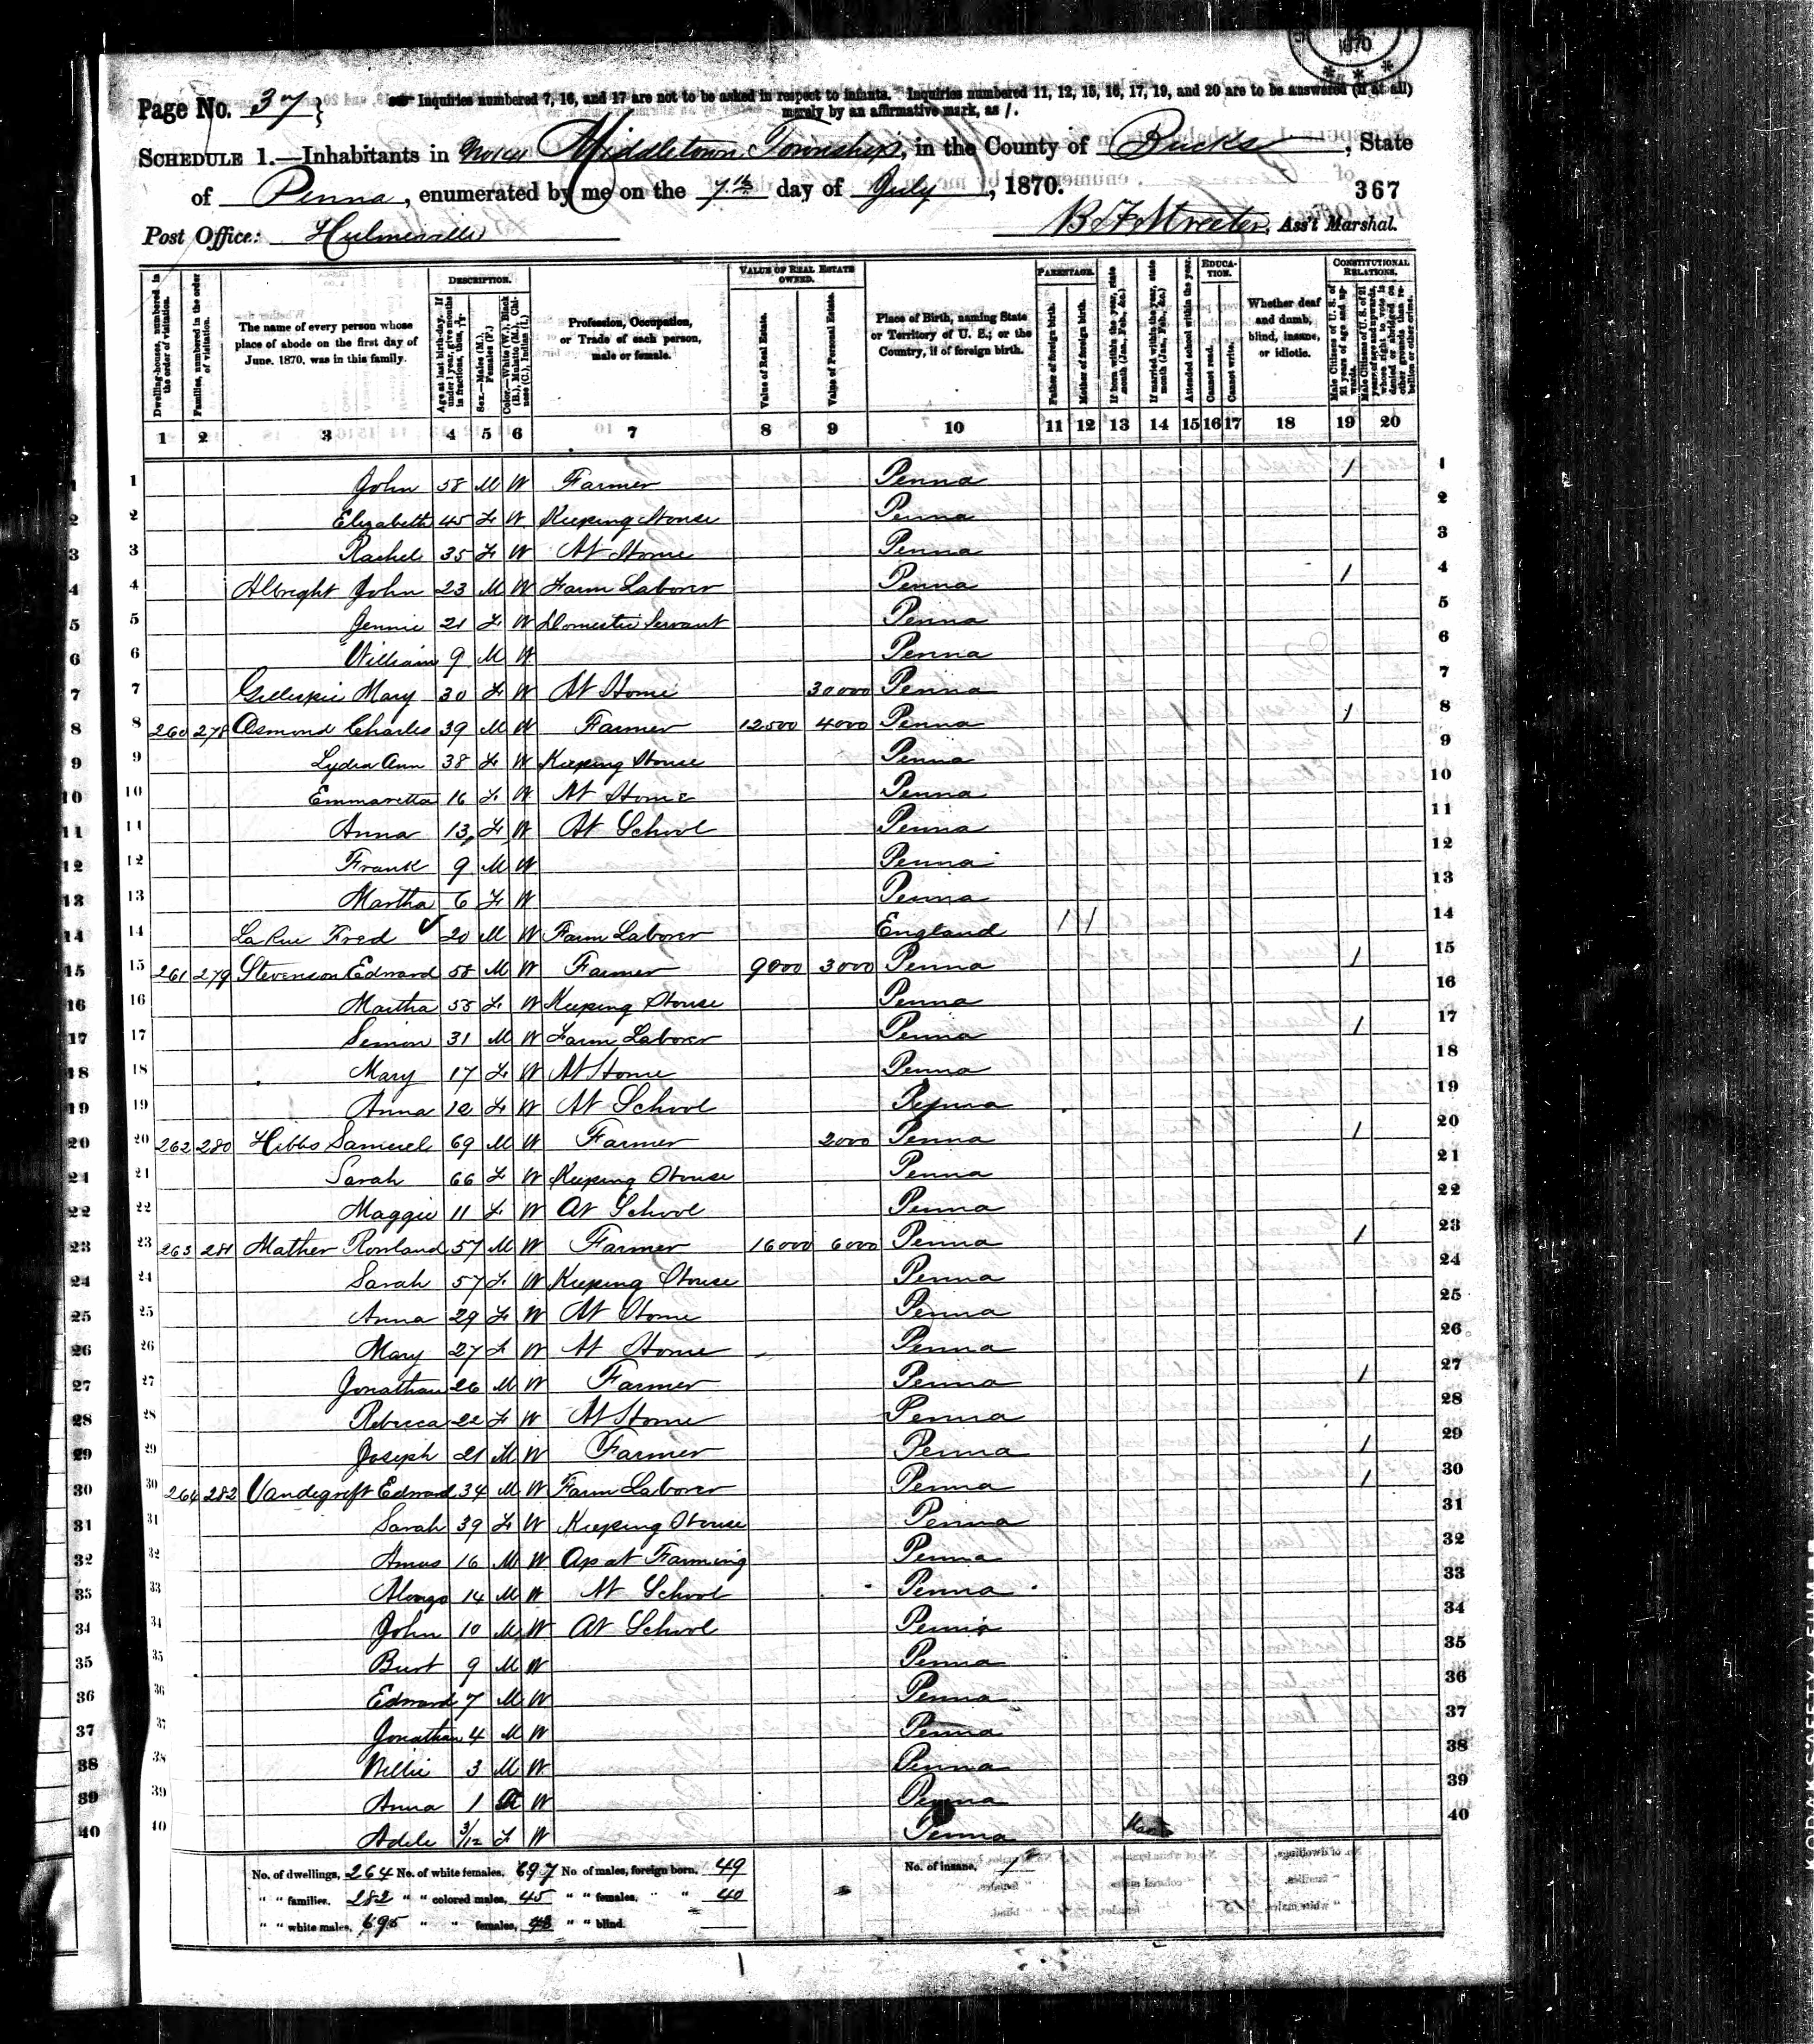 1870
* * *
Page No. 37 } Inquiries numbered 7, 16, and 17 are not to be asked in respect to infants. Inquiries numbered 11, 12, 15, 16, 17, 19, and 20 are to be answered (if at all)
merely by an affirmative mark, as /.
SCHEDULE 1.—Inhabitants in Middletown Township, in the County of Bucks, State
of Penna, enumerated by me on the 7th day of July, 1870.
367
Post Office: Hulmeville
B F Streeter, Ass't Marshal.
DESCRIPTION. VALUE OF REAL ESTATE OWNED. PARENTAGE. EDUCATION. CONSTITUTIONAL RELATIONS.
Dwelling-houses, numbered in the order of visitation.
Families, numbered in the order of visitation.
The name of every person whose place of abode on the first day of June, 1870, was in this family.
Age at last birth-day. If under 1 year, give months in fractions, thus, 3/12
Sex.—Males (M.), Females (F.)
Color.—White (W.), Black (B.), Mulatto (M.), Chinese (C.), Indian (I.)
Profession, Occupation, or Trade of each person, male or female.
Value of Real Estate.
Value of Personal Estate.
Place of Birth, naming State or Territory of U. S.; or the Country, if of foreign birth.
Father of foreign birth.
Mother of foreign birth.
If born within the year, state month (Jan., Feb., &c.)
If married within the year, state month (Jan., Feb., &c.)
Attended school within the year.
Cannot read.
Cannot write.
Whether deaf and dumb, blind, insane, or idiotic.
Male Citizens of U. S. of 21 years of age and upwards.
Male Citizens of U. S. of 21 years of age and upwards, whose right to vote is denied or abridged on other grounds than rebellion or other crime.
1 2 3 4 5 6 7 8 9 10 11 12 13 14 15 16 17 18 19 20
1 John 58 M W Farmer Penna / 1
2 Elizabeth 45 F W Keeping House Penna 2
3 Rachel 35 F W At Home Penna 3
4 Albright John 23 M W Farm Laborer Penna / 4
5 Jennie 21 F W Domestic Servant Penna 5
6 William 9 M W Penna 6
7 Gillespie Mary 30 F W At Home 30000 Penna 7
8 260 278 Osmond Charles 39 M W Farmer 12500 4000 Penna / 8
9 Lydia Ann 38 F W Keeping House Penna 9
10 Emmaretta 16 F W At Home Penna 10
11 Anna 13 F W At School Penna 11
12 Frank 9 M W Penna 12
13 Martha 6 F W Penna 13
14 La Rue Fred ✓ 20 M W Farm Laborer England / / 14
15 261 279 Stevenson Edward 58 M W Farmer 9000 3000 Penna / 15
16 Martha 55 F W Keeping House Penna 16
17 Simon 31 M W Farm Laborer Penna / 17
18 Mary 17 F W At Home Penna 18
19 Anna 12 F W At School Penna 19
20 262 280 Hibbs Samuel 69 M W Farmer 2000 Penna / 20
21 Sarah 66 F W Keeping House Penna 21
22 Maggie 11 F W At School Penna 22
23 263 281 Mather Rowland 57 M W Farmer 16000 6000 Penna / 23
24 Sarah 57 F W Keeping House Penna 24
25 Anna 29 F W At Home Penna 25
26 Mary 27 F W At Home Penna 26
27 Jonathan 26 M W Farmer Penna / 27
28 Rebecca 22 F W At Home Penna 28
29 Joseph 21 M W Farmer Penna / 29
30 264 282 Vandegrift Edward 34 M W Farm Laborer Penna / 30
31 Sarah 39 F W Keeping House Penna 31
32 Amos 16 M W Ap at Farming Penna 32
33 Alonzo 14 M W At School Penna 33
34 John 10 M W At School Penna 34
35 Burt 9 M W Penna 35
36 Edward 7 M W Penna 36
37 Jonathan 4 M W Penna 37
38 Willie 3 M W Penna 38
39 Anna 1 W Penna 39
40 Adele 3/12 F W Penna 40
No. of dwellings, 264 No. of white females, 697 No of males, foreign born, 49 No. of insane,
" " families, 282 " " colored males, 45 " " females, " " 40
" " white males, 695 " " females, " " blind.